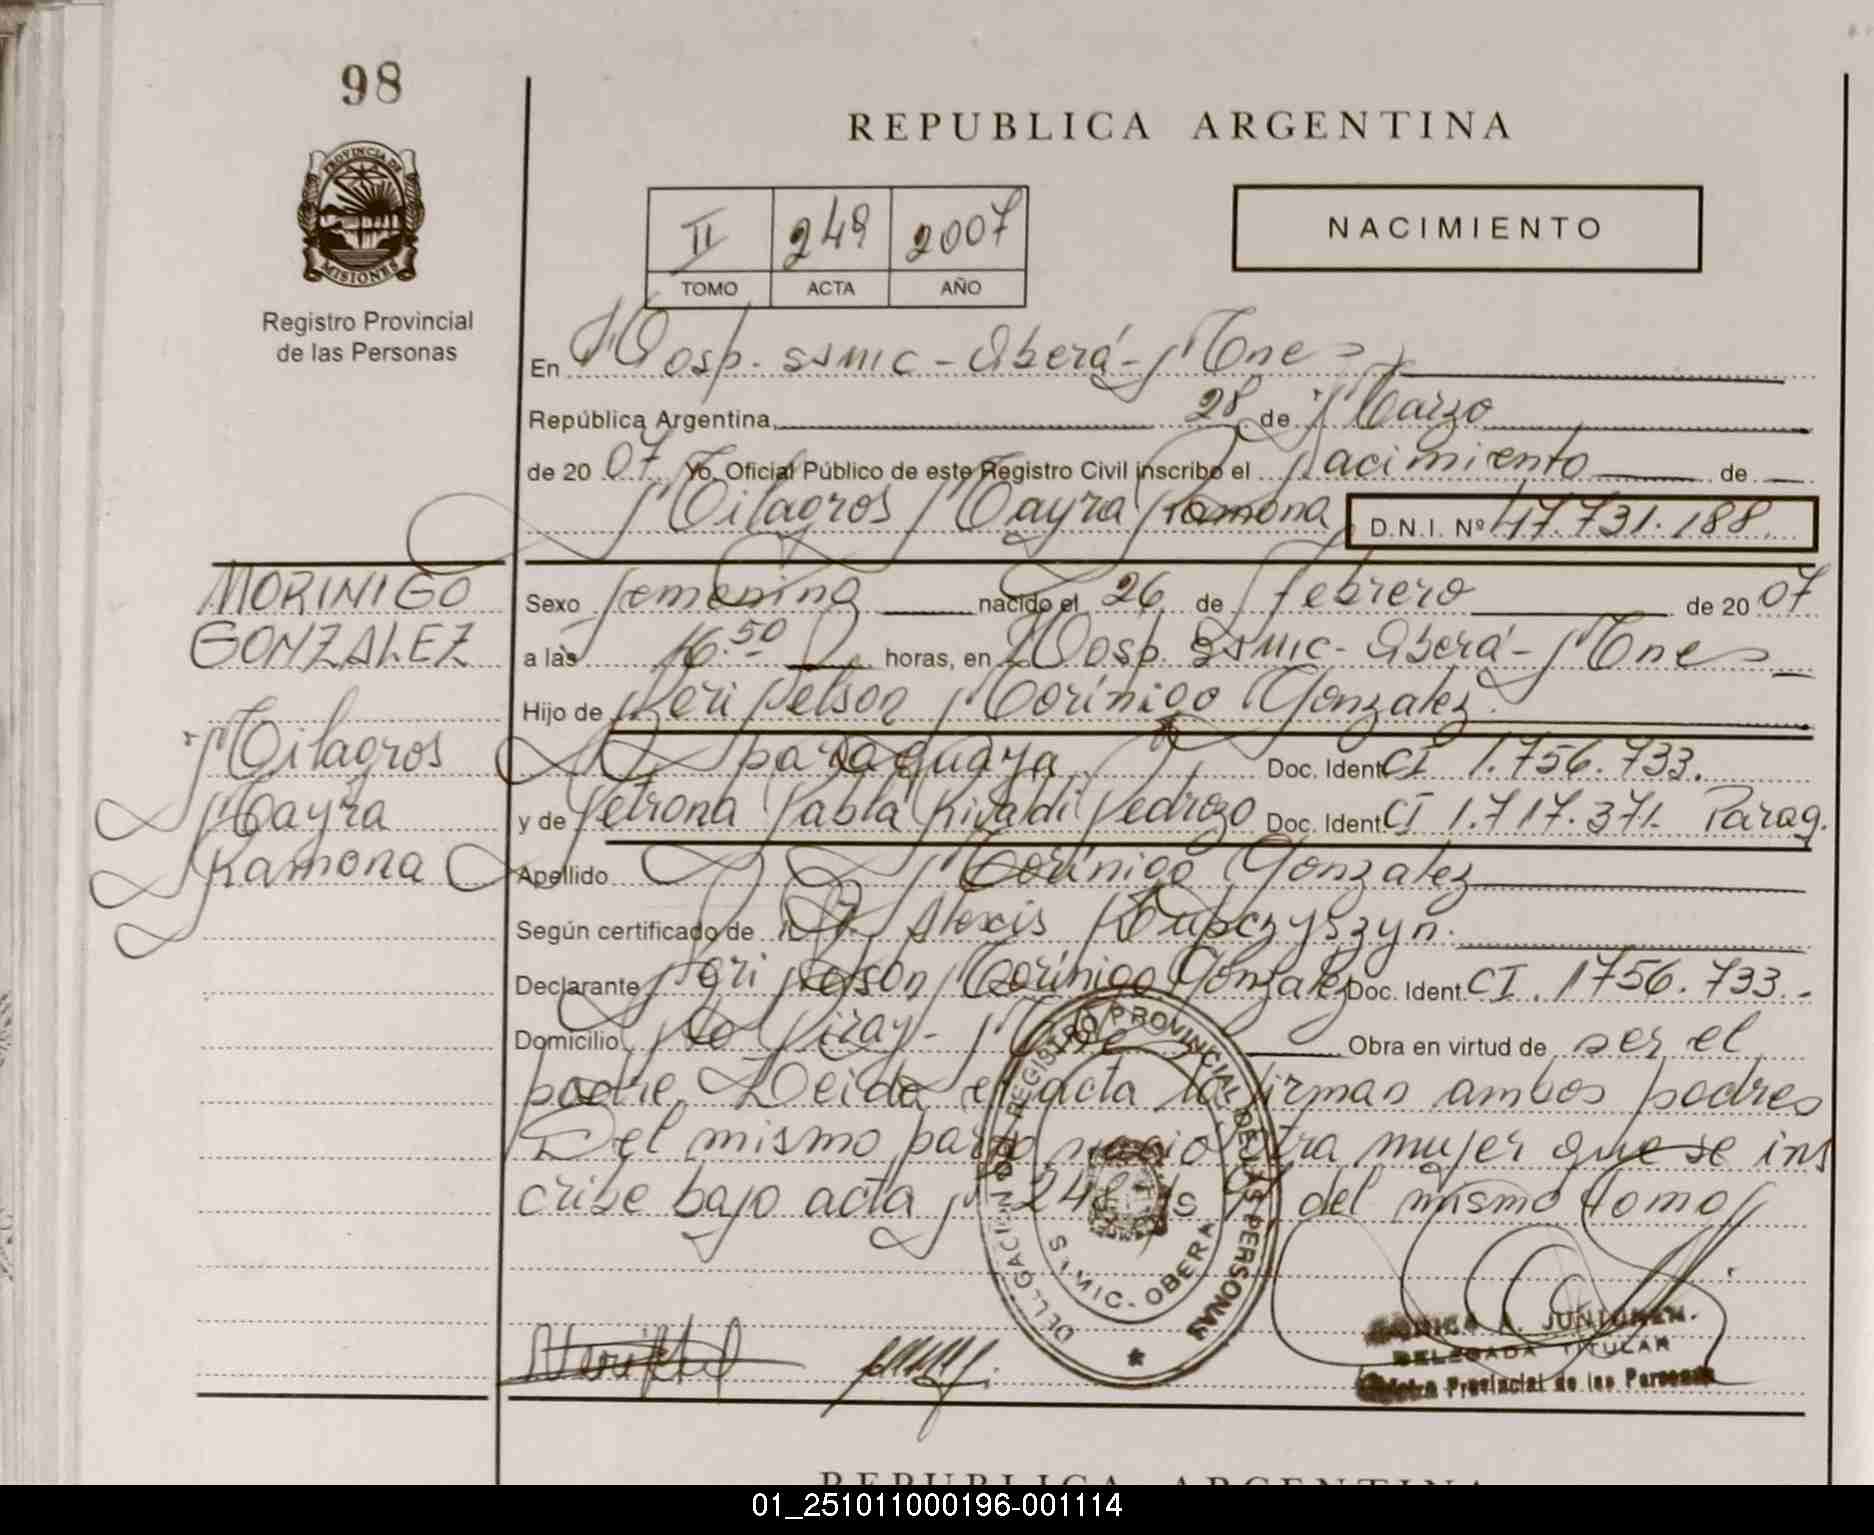 98
REPUBLICA ARGENTINA
PROVINCIA DE
MISIONES
Registro Provincial
de las Personas
II 249 2007
TOMO ACTA AÑO
NACIMIENTO
En Hosp. SSMIC - Oberá - Mnes
República Argentina, 28 de Marzo
de 20 07 Yo, Oficial Público de este Registro Civil inscribo el Nacimiento de
Milagros Mayra Ramona D.N.I. Nº 47.731.188
MORINIGO
GONZALEZ
Milagros
Mayra
Ramona
Sexo femenino nacido el 26 de febrero de 20 07
a las 16.50 horas, en Hosp. SSMIC - Oberá - Mnes
Hijo de Neri Nelson Morínigo Gonzalez
paraguaya Doc. Ident. CI 1.756.733.
y de Petrona Pabla Rivaldi Pedrozo Doc. Ident. CI 1.717.371. Parag.
Apellido Morínigo Gonzalez
Según certificado de Dr. Alexis Kupczyszyn.
Declarante Neri Nelson Morínigo Gonzalez Doc. Ident. CI. 1756.733.-
Domicilio Pto Piray - Mnes Obra en virtud de ser el
padre. Leida el acta la firman ambos padres
Del mismo parto nació otra mujer que se ins
cribe bajo acta Nº 248 fs 97 del mismo tomo
DELEGACION DEL REGISTRO PROVINCIAL DE LAS PERSONAS
S.S.MIC-OBERA
MONICA A. JUNIONEN.
DELEGADA TITULAR
Registro Provincial de las Personas
REPUBLICA ARGENTINA
01_251011000196-001114